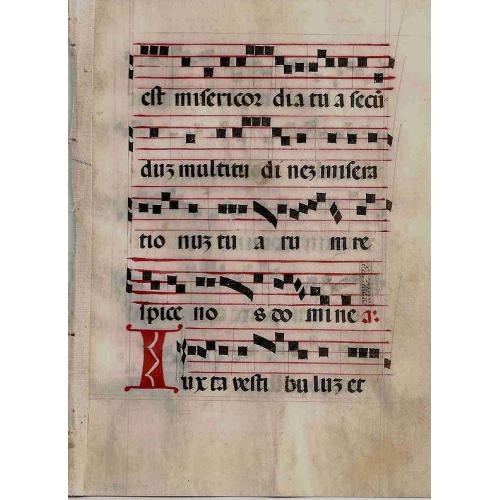 est misericor dia tu a secũ
duz multitu di nez misera
tio nuz tu a ru m re
spice no s do mine a.
Iuxta vesti bu luz et